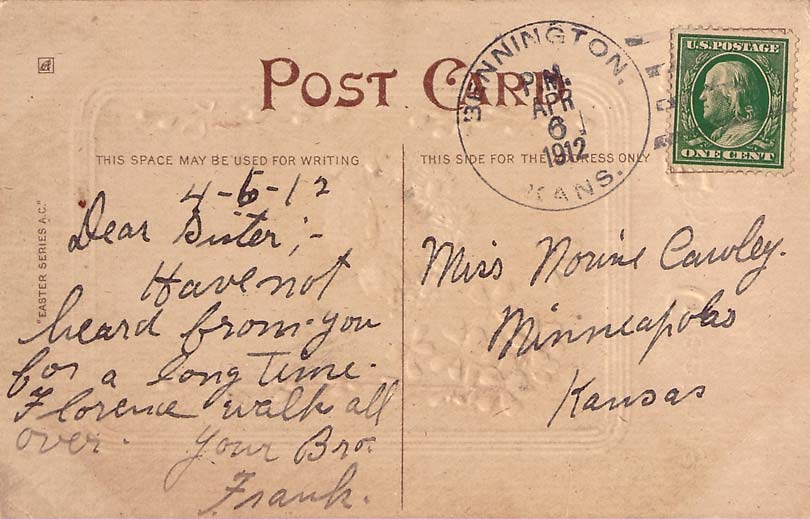 POST CARD
BENNINGTON.
P.M.
APR
6
1912
KANS.
U.S. POSTAGE
ONE CENT
THIS SPACE MAY BE USED FOR WRITING
THIS SIDE FOR THE ADDRESS ONLY
"EASTER SERIES A.C."
4-6-12
Dear Sister;-
Have not
heard from you
for a long time.
Florence walks all
over. Your Bro.
Frank.
Miss Norine Cawley.
Minneapolis
Kansas